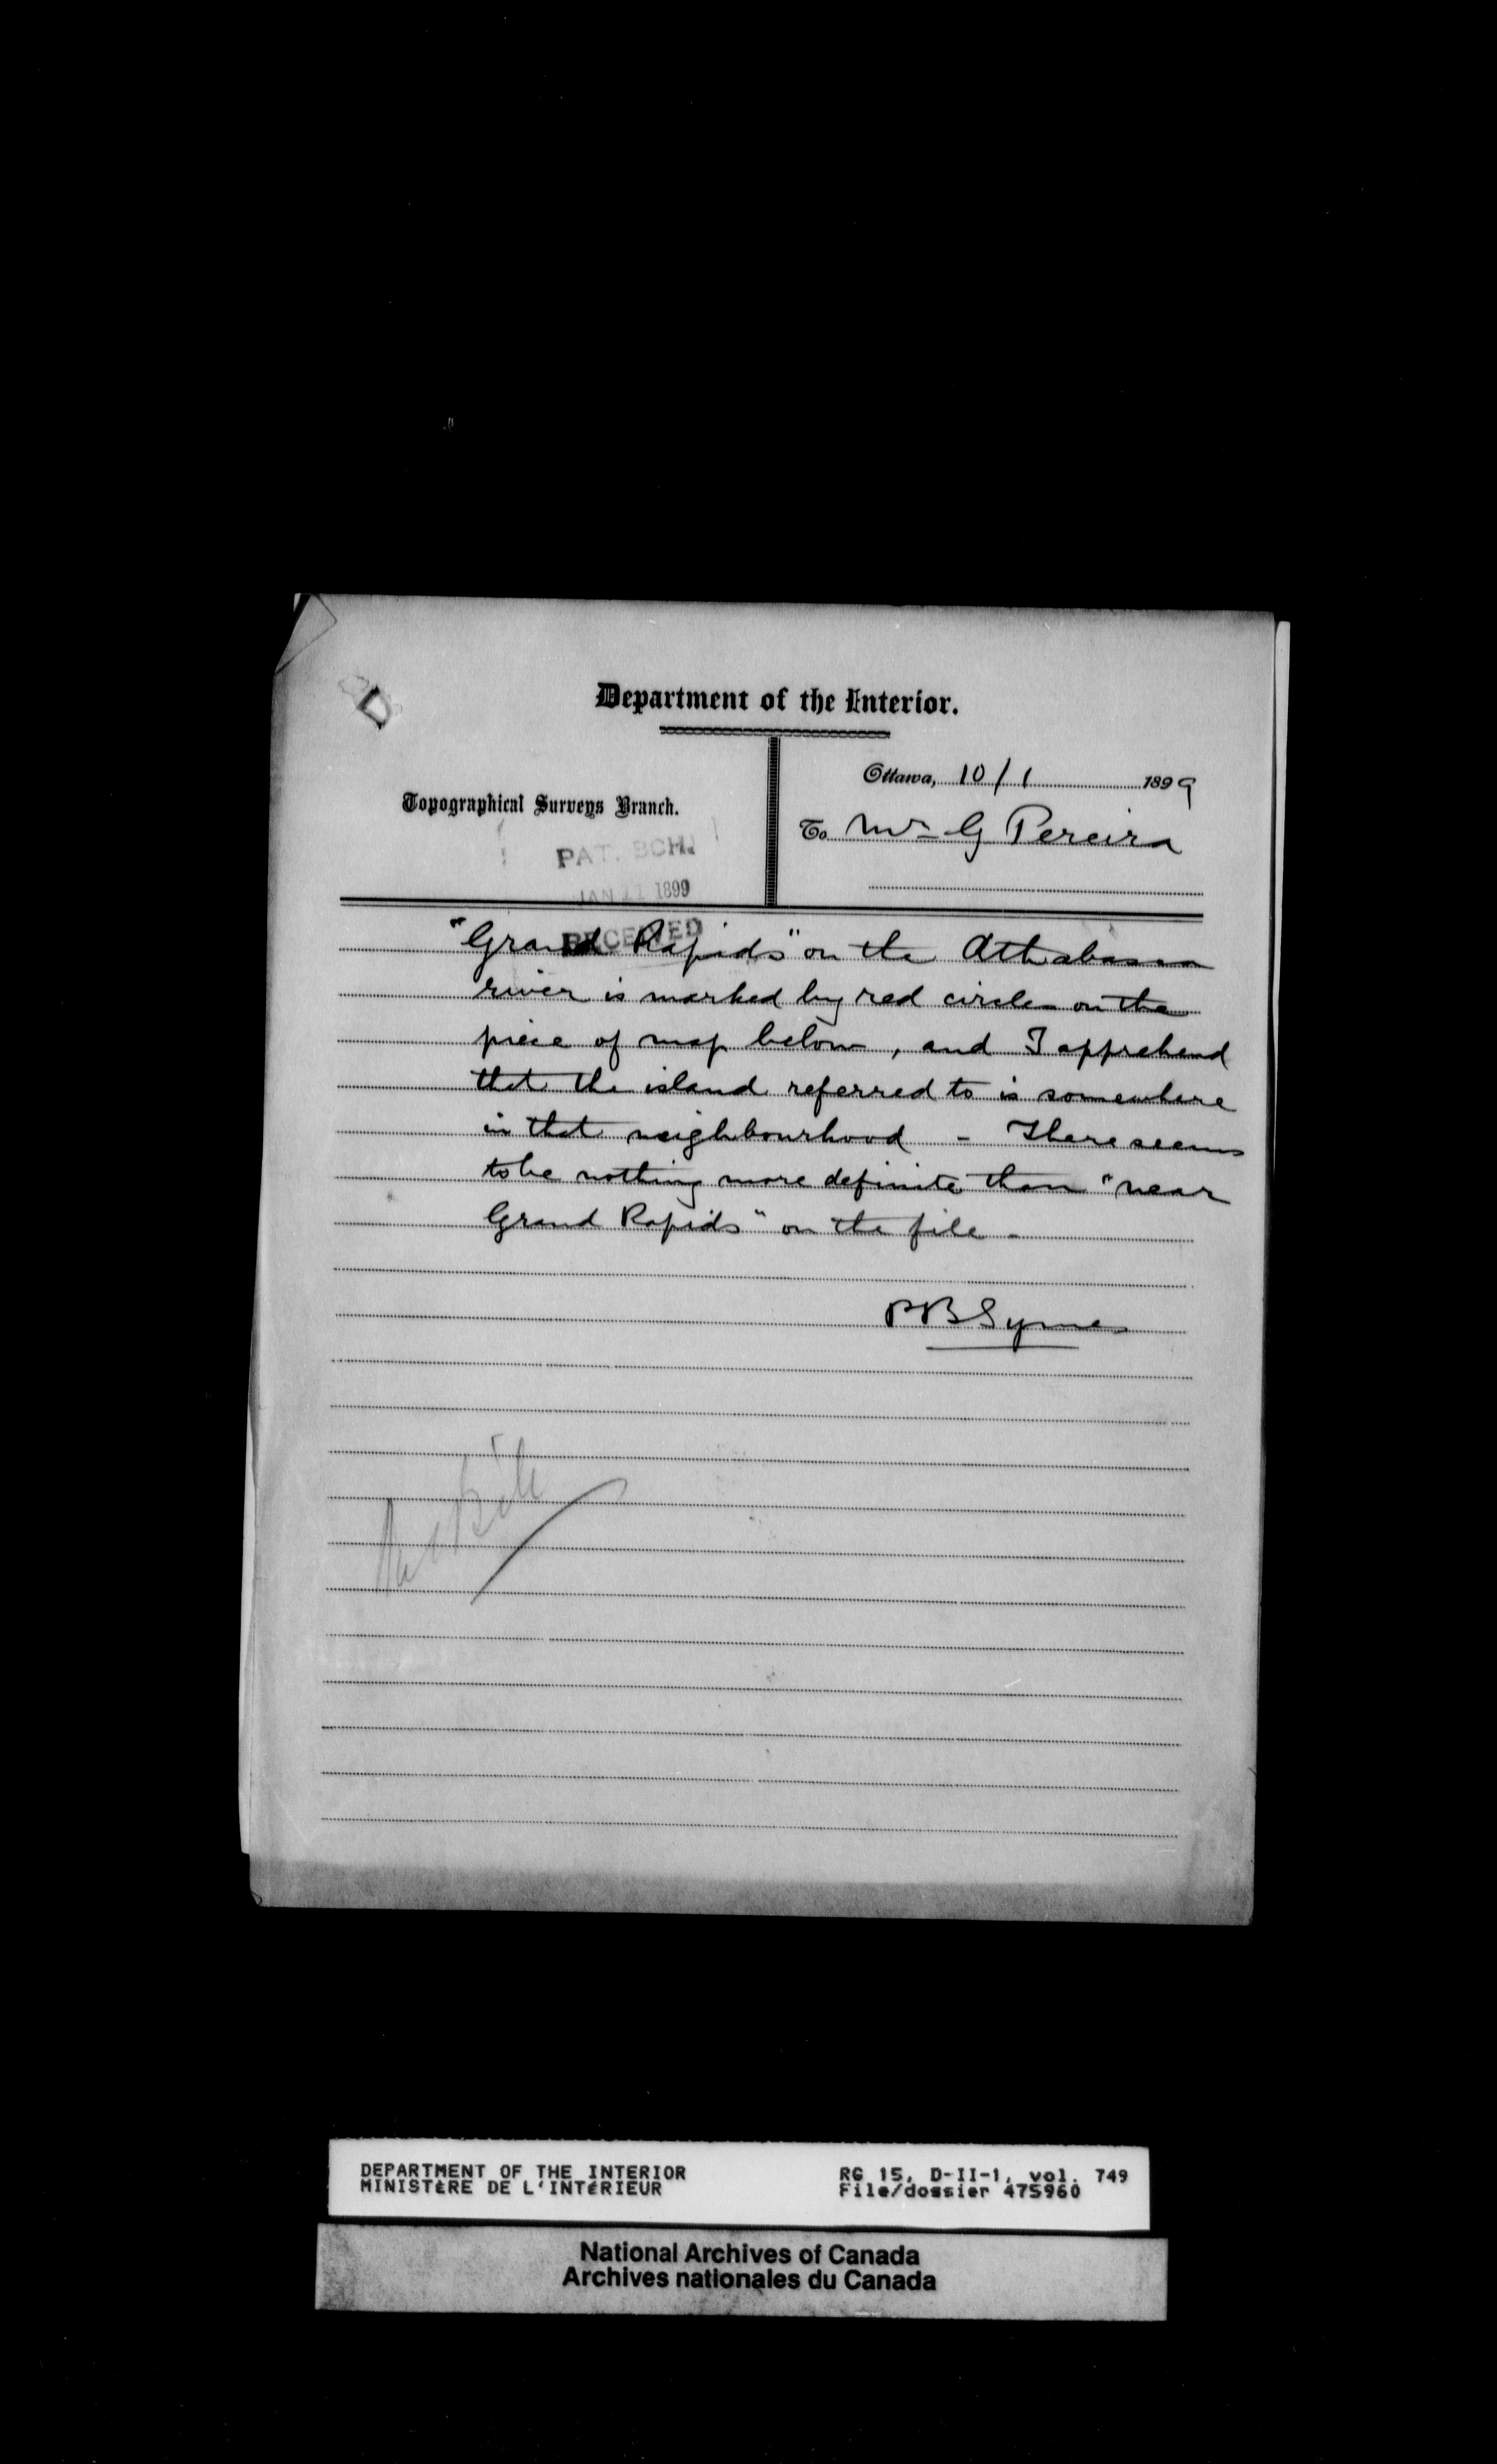 Department of the Interior.
Topographical Surveys Branch.
Ottawa, 10/1 1899
To Mr G Pereira
PAT. BCH.
JAN 11 1899
RECEIVED
"Grand Rapids" on the Athabasca
river is marked by red circle on the
piece of map below, and I apprehend
that the island referred to is somewhere
in that neighbourhood - There seems
to be nothing more definite than "near
Grand Rapids" on the file -
PB Symes
DEPARTMENT OF THE INTERIOR
MINISTÈRE DE L'INTÉRIEUR
RG 15, D-II-1, vol. 749
File/dossier 475960
National Archives of Canada
Archives nationales du Canada